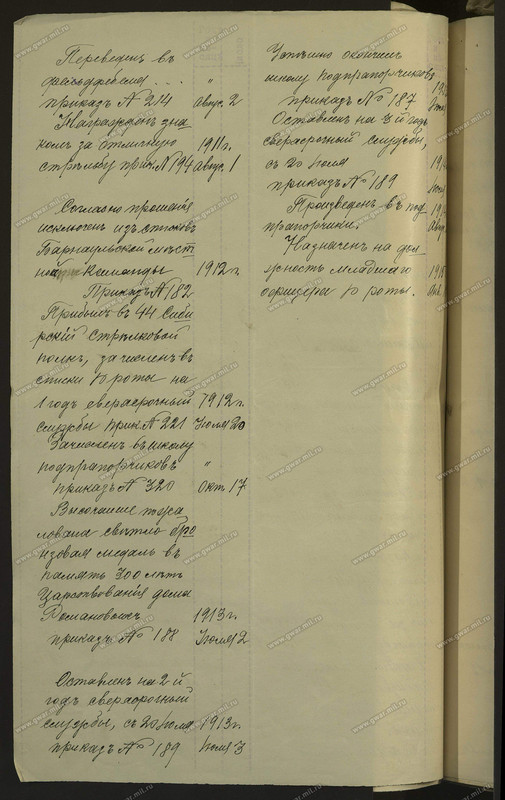 Переведенъ въ
фельдфебеля . . . "
приказъ № 214 авгус. 2
Награжденъ зна
комъ за отличную 1911 г.
стрѣльбу прик. № 194 Авгус. 1
Согласно прошенія
исключенъ изъ списковъ
Барнаульской мѣст
ной команды 1912 г.
Приказъ № 182
Прибылъ въ 44 Сиби
рскій Стрѣлковой
полкъ, зачисленъ въ
списки 10 роты на
1 годъ сверхсрочный 1912 г.
службы прик. № 221 Іюля 20
Зачисленъ въ школу
подпрапорщиковъ "
приказъ № 320 Окт 17
Высочайше пожа
лована свѣтло бро
нзовая медаль въ
память 300 лѣтъ
Царствованія дома
Романовыхъ 1913 г.
приказъ № 188 Іюля 2
Оставленъ на 2 й
годъ сверхсрочный
службы, съ 20 Іюля 1913 г.
приказъ № 189 Іюля 3
Успѣшно окончилъ
школу подпрапорщиковъ
приказъ № 187
Оставленъ на 3 й годъ
сверхсрочный службы,
съ 20 Іюля
приказъ № 189
Произведенъ въ под
прапорщики.
Назначенъ на дол
жность младшаго
офицера 10 роты.
www.gwar.mil.ru